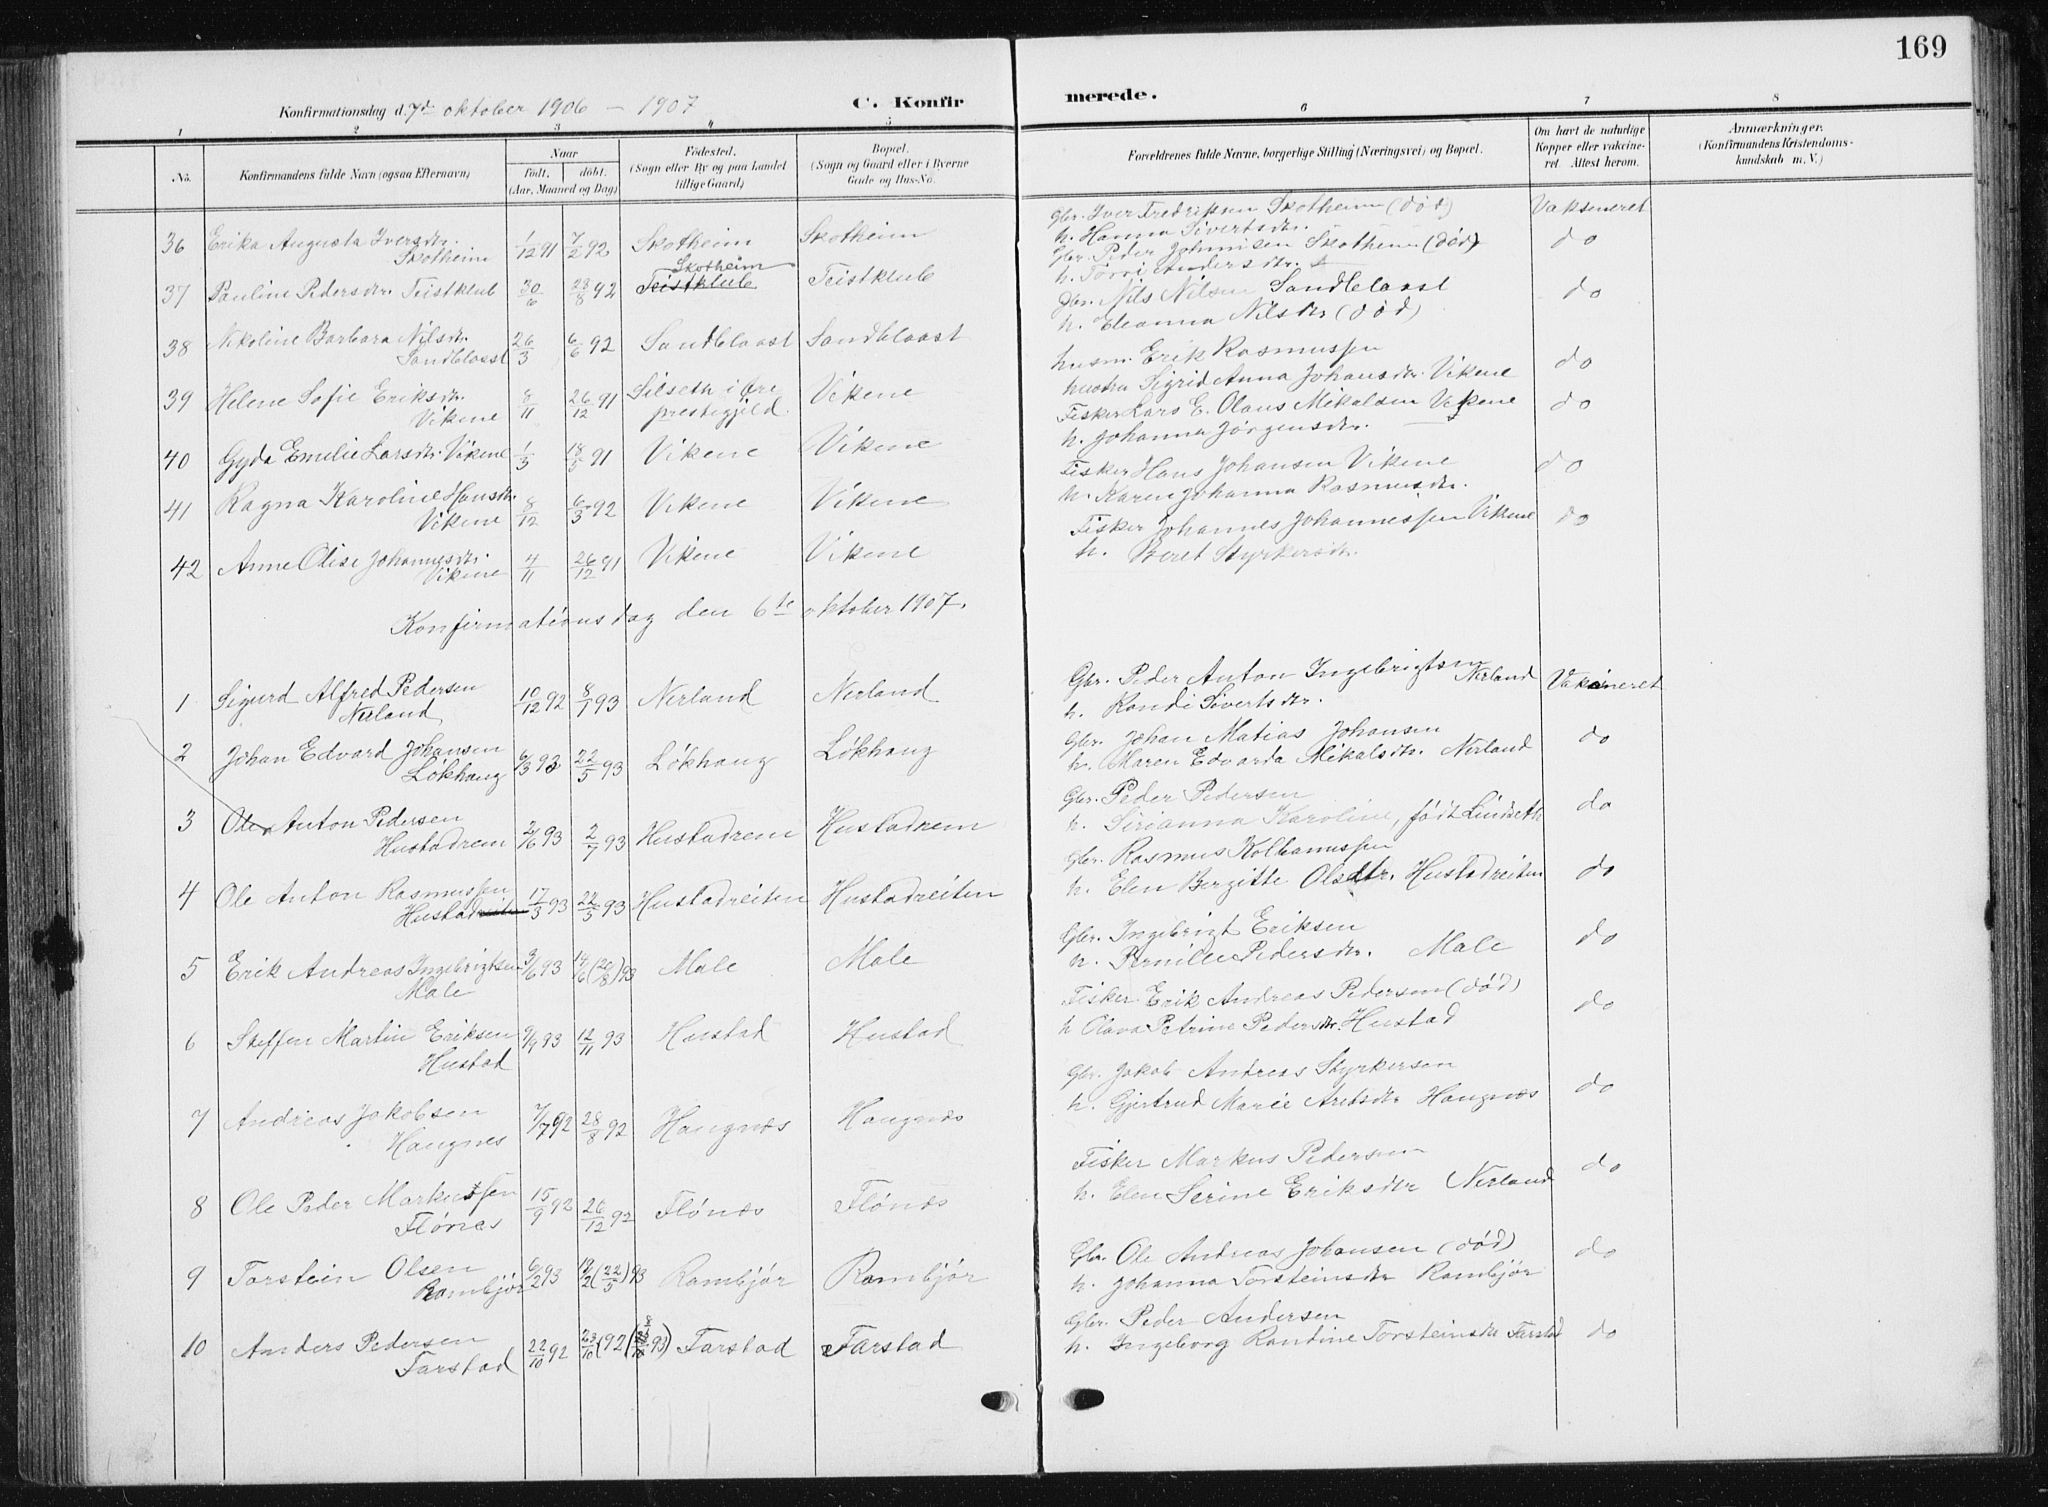 169
Konfirmationsdag d. 7de oktober 1906 – 1907 C. Konfirmerede.
1 2 3 4 5 6 7 8
No. Konfirmandens fulde Navn (ogsaa Efternavn) Naar født. døbt. (Aar, Maaned og Dag) Fødested. (Sogn eller By og paa Landet tillige Gaard) Bopæl. (Sogn og Gaard eller i Byerne Gade og Hus-No. Forældrenes fulde Navne, borgerlige Stilling (Næringsvei) og Bopæl. Om havt de naturlige Kopper eller vakcineret Attest herom. Anmærkninger. (Konfirmandens Kristendomskundskab m. V.)
36 Erika Augusta Iversdtr. Skotheim 1/12 91 7/2 92 Skotheim Skotheim Gbr. Iver Fredriksen Skotheim (død) Vaksineret
h. Hanna Sivertsdtr. do
37 Pauline Pedersdtr. Teistklub 30/6 28/8 92 Skotheim Teistklub Teistklub Gbr. Peder Johnnisen Skotheim (død)
h. Andersdtr.
38 Nikoline Barbara Nilsdtr. Sandblaast 26/3 6/6 92 Sandblaast Sandblaast Gbr. Nils Nilsen Sandblaast do
h. Eleanna Nilsdtr (død)
39 Helene Sofie Eriksdtr. Vikene 8/11 26/12 91 Silseth i Øre prestegjeld. Vikene husm. Erik Rasmussen do
hustru Sigrid Anna Johansdtr. Vikene
40 Gyda Emilie Larsdtr. Vikene 1/3 18/5 91 Vikene Vikene Fisker Lars E. Olaus Mekalsen Vikene do
h. Johanna Jørgensdtr.
41 Ragna Karoline Hansdtr. Vikene 8/12 6/3 92 Vikene Vikene Fisker Hans Johansen Vikene do
h. Karen Johanna Rasmusdtr.
42 Anne Olise Johannesdtr. Vikene 4/11 26/12 91 Vikene Vikene Fisker Johannes Johannessen Vikene do
h. Beret Styrkersdtr.
Konfirmationsdag den 6te oktober 1907.
1 Sigurd Alfred Pedersen Nerland 10/12 92 8/1 93 Nerland Nerland Gbr. Peder Anton Ingebrigtsen Nerland Vaksineret
h. Randi Sivertsdtr.
2 Johan Edvard Johansen Løkhaug 6/3 93 22/5 93 Løkhaug Løkhaug Gbr. Johan Matias Johansen do
h. Maren Edvarda Mikalsdtr. Nerland
3 Ole Anton Pedersen Hustadrem 2/6 93 2/7 93 Hustadrem Hustadrem Gbr. Peder Pedersen do
h. Sirianna Karoline, født Lindseth
4 Ole Anton Rasmussen Hustadreiten 17/3 93 22/5 93 Hustadreiten Hustadreiten Gbr. Rasmus Kolbanussen do
h. Elen Bergitte Olsdtr. Hustadreiten
5 Erik Andreas Ingebrigtsen Male 3/6 93 14/6 (20/8) 93 Male Male Gbr. Ingebrigt Eriksen do
h. Pernille Pedersdtr. Male
6 Steffen Martin Eriksen Hustad 9/9 93 12/11 93 Hustad Hustad Fisker Erik Andreas Pedersen (død) do
h Olava Petrine Pedersdtr. Hustad
7 Andreas Jakobsen Haugnes 7/7 92 28/8 92 Haugnæs Haugnæs Gbr. Jakob Andreas Styrkersen do
h. Gjertrud Marie Arntsdtr Haugnæs
8 Ole Peder Markussen Flønes 15/9 92 26/12 92 Flønæs Flønæs Fisker Markus Pedersen do
h. Elen Serine Eriksdtr Nerland
9 Torstein Olsen Rambjør 6/2 93 19/2 (22/5) 93 Rambjør Rambjør Gbr. Ole Andreas Johansen (død) do
h. Johanna Torsteinsdtr Rambjør
10 Anders Pedersen Farstad 22/10 92 23/10 92 Farstad Farstad Gbr. Peder Andersen
h. Ingeborg Randine Torsteinsdtr Farstad do